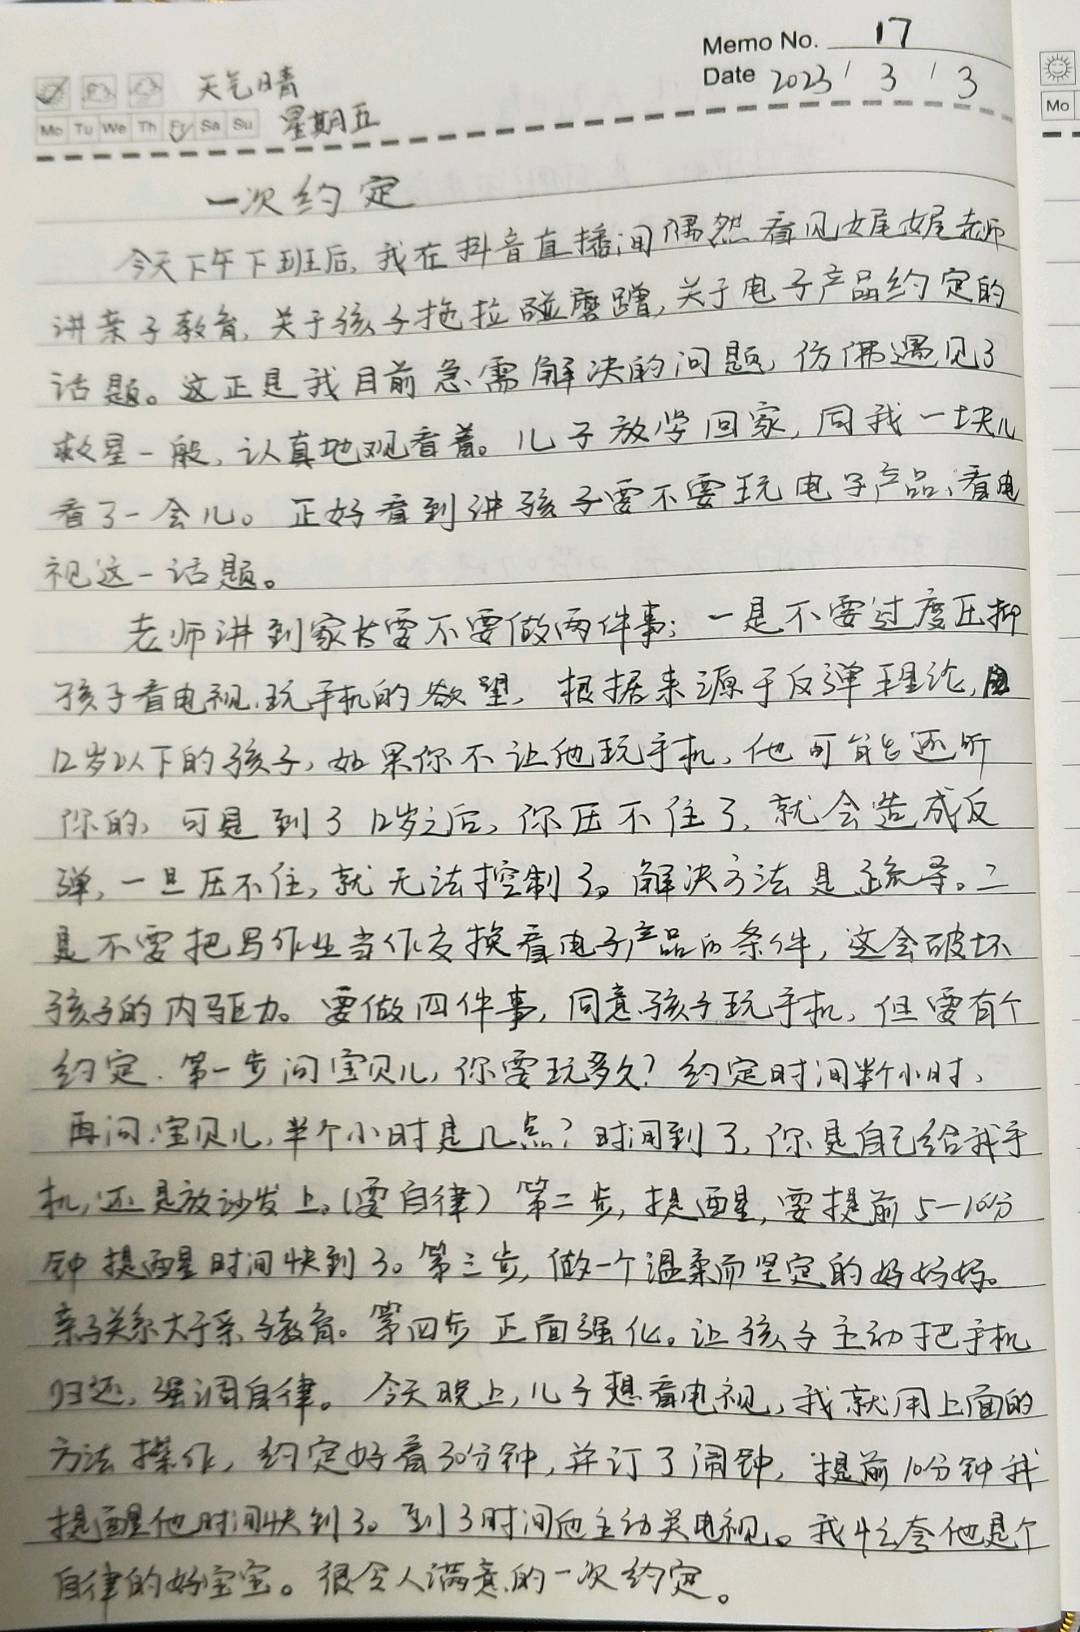 Memo No. 17
Date 2023 / 3 / 3
天气晴
Mo Tu We Th Fr Sa Su 星期五
Mo
一次约定
今天下午下班后,我在抖音直播间偶然看见娓娓老师
讲亲子教育,关于孩子拖拉磨蹭,关于电子产品约定的
话题。这正是我目前急需解决的问题,仿佛遇见了
救星一般,认真地观看着。儿子放学回家,同我一块儿
看了一会儿。正好看到讲孩子要不要玩电子产品、看电
视这一话题。
老师讲到家长要不要做两件事:一是不要过度压抑
孩子看电视、玩手机的欲望,根据来源于反弹理论,
12岁以下的孩子,如果你不让他玩手机,他可能还听
你的,可是到了12岁之后,你压不住了,就会造成反
弹,一旦压不住,就无法控制了。解决方法是疏导。二
是不要把写作业当作交换看电子产品的条件,这会破坏
孩子的内驱力。要做四件事,同意孩子玩手机,但要有个
约定.第一步问宝贝儿,你要玩多久?约定时间半个小时,
再问,宝贝儿,半个小时是几点?时间到了,你是自己给我手
机,还是放沙发上。(要自律)第二步,提醒,要提前5-10分
钟提醒时间快到了。第三步,做一个温柔而坚定的好妈妈。
亲子关系大于亲子教育。第四步正面强化。让孩子主动把手机
归还,强调自律。今天晚上,儿子想看电视,我就用上面的
方法操作,约定好看30分钟,并订了闹钟,提前10分钟我
提醒他时间快到了。到了时间他主动关电视。我夸他是个
自律的好宝宝。很令人满意的一次约定。